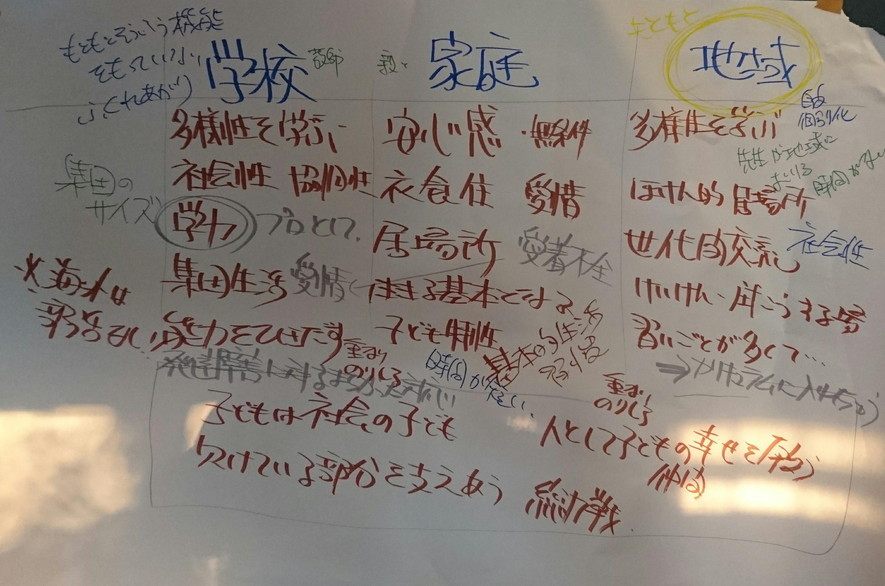 もともとそういう機能
をもっていない
ふくれあがり
学校
教師
親と
家庭
地域
多様性を学ぶ
社会性 協同性
集団の
サイズ
学力
プロとして、
集団生活
愛情
※海外は
能力をひきだす
安心感 ・無条件
衣食住 愛情
居場所
愛着不全
生きる基本である
子ども特性
基本的生活
習慣
重なり
のりしろ
多様性を学ぶ
自由
個別化
先生が地域に
時間がない
ほけん的居場所
世代間交流 社会性
けいけん
習いごとが多くて…
→カリキュラムに入れちゃう
重なり
のりしろ
子どもは社会の子ども
欠けている部分を支えあう
人として子どもの幸せを願う
仲間
総力戦